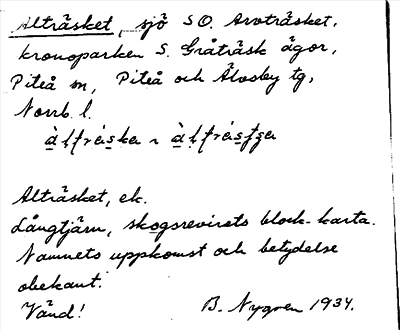 Alträsket, sjö SO. Arvträsket,
kronoparken S. Gråträsk ägor,
Piteå sn, Piteå och Älvsby tg,
Norrb. l.
Alträsket, ek.
Långtjärn, skogsrevirets block-karta.
Namnets uppkomst och betydelse
obekant.
Vänd! B. Nygren 1934.